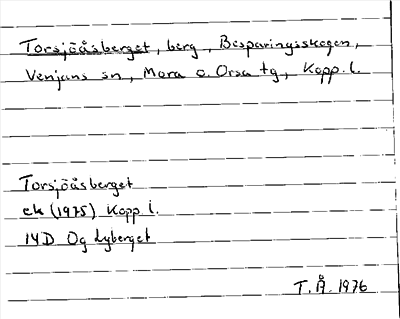 Torsjöåsberget, berg, Besparingsskogen,
Venjans sn, Mora o. Orsa tg, Kopp. l.
Torsjöåsberget
ek (1975) Kopp l.
14D 0g Lyberget
T.Å. 1976